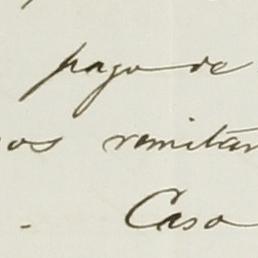 pago de
os remitan
Caso